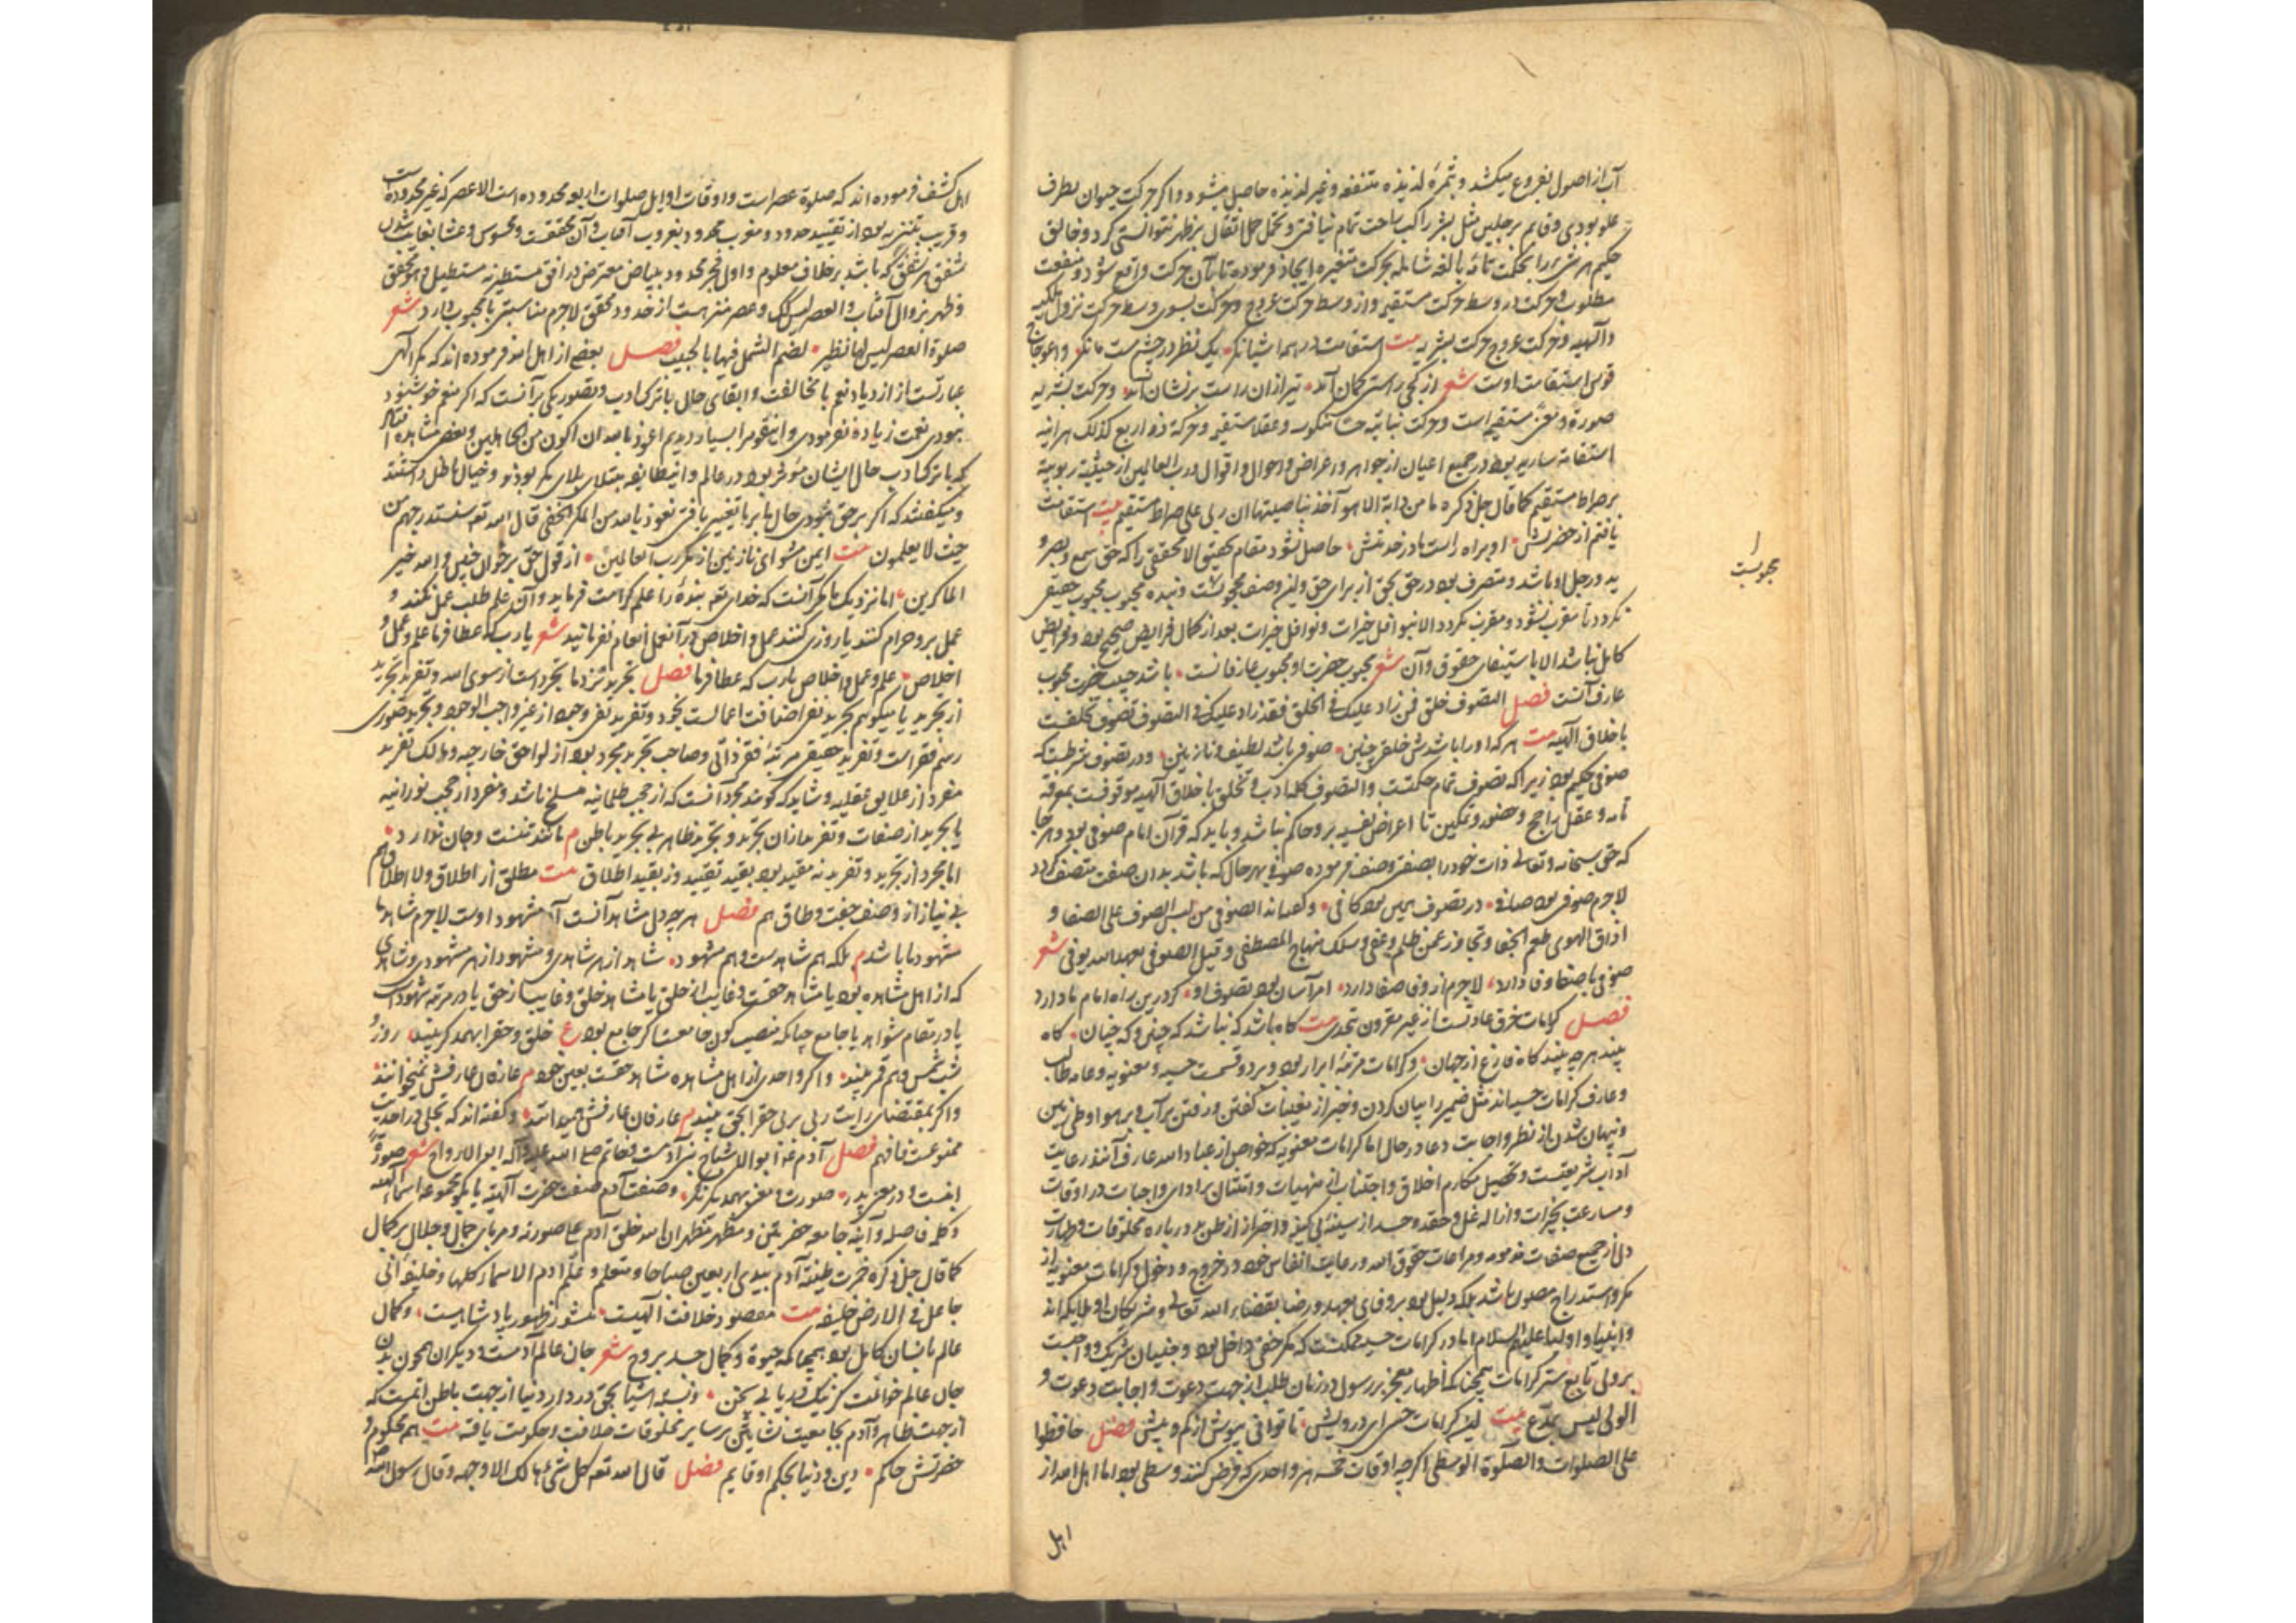 آب از اصول بفروع میکشد و ثمرهٔ لذیذه منتفعه و غیر لذیذه حاصل میشود و اکر حرکت حیوان بطرف
علو بودی و قایم برجلین مثل بشر راکب راحت تمام نیافتی و تحمل حمل اثقال بر ظهر نتوانستی کرد و خالق
حکیم هر شی را بحکمت بالغه شامله بحرکت متغیره ایجاد فرموده تا بآن حرکت واقع شود و منفعت
مطلوب و حرکت در وسط حرکت مستقیم و از وسط حرکت عروج و حرکت بسوی وسط حرکت نزول ملکیه
و الهیه و حرکت عروج حرکت بشریه بیت استقامت در همه اشیا نکر یک نظر در چشم مست ما نکر و اعوجاج
قوس استقامت اوست شعر از کجی راستی کمان آمد تیر ازان راست بر نشان آمد و حرکت بشریه
صورة و معنی مستقیم است و حرکت نباتیه حسا منکوس و عقلا مستقیم و حرکة ذو اربع کذلک
استقامة ساریه بود در جمیع اعیان از جواهر و اعراض و احوال و اقوال و رب العالمین از حیثیة ربوبیة
بر صراط مستقیم کما قال جل ذکره ما من دابة الا هو آخذ بناصیتها ان ربی علی صراط مستقیم بیت استقامت
یافتم از حضرتش او براه راست باد در خدمتش حاصل نشود مقام تحقیق الا محققی را که حق سمع و بصر و
ید و رجل او باشد و متصرف بود در حق بحق از برای حق و این وصف محبوبست و بنده محبوب محبوب حقیقی
نکردد تا مقرب نشود و مقرب نکردد الا بنوافل خیرات و نوافل خیرات بعد از کمال فرایض صحیح بود و فرایض
کامل نباشد الا باستیفای حقوق و آن شعر محبوب حضرت او محبوب عارفانست باشد حبیب حضرت محبوب
عارف آنست فصل التصوف خلق فمن زاد علیک فی الخلق فقد زاد علیک فی التصوف تصوف تخلقست
باخلاق الهیه بیت هر که او را باشدش خلقی چنین صوفی باشد لطیف و نازنین و در تصوف شرطست که
صوفی حکیم بود زیرا که تصوف تمام حکمتست و التصوف کله ادب و تخلق باخلاق الهیه موقوفست بمعرفة
تامه و عقل راجح و حضور و تمکین تا اعراض نفسیه برو حاکم نباشد و باید که قرآن امام صوفی بود و هر جا
که حق سبحانه و تعالی ذات خود را بصفتی وصف فرموده صوفی بهر حال که باشد بدان صفت متصف کردد
لاجرم صوفی بود صافی در تصوف همین بود کافی و کفته اند الصوفی من لبس الصوف علی الصفا و
اذاق الهوی طعم الجفا و تجاوز عمن ظلم و عفی و سلک منهاج المصطفی و قیل الصوفی بعهد الله یوفی شعر
صوفی با صفا وفا دارد لاجرم از وفا صفا دارد امر آسان بود تصوف او کر درین راه امام ما دارد
فصل کرامات خرق عادتست از غیر مقرون تحدی بیت کاه باشد که نباشد که چنین و که چنان کاه
بیند هر چه بیند کاه فارغ از جهان و کرامات مرتبهٔ ابرار بود و بر دو قسمست حسیه و معنویه و عامه طالب
و عارف کرامات حسیه اند مثل ضمیر را بیان کردن و خبر از مغیبات کفتن و رفتن بر آب و بر هوا و طی زمین
و پنهان شدن از نظر و اجابت دعا در حال اما کرامات معنویه که خواص از عباد الله عارف آنند رعایت
آداب شریعتست و تحصیل مکارم اخلاق و اجتناب از منهیات و امتثال بر ادای واجبات در اوقات
و مسارعت بخیرات و ازالهٔ غل و حقد و حسد از سینهٔ بی کینه و احتراز از ظن بد در باره مخلوقات و طهارت
دل از جمیع صفات مذمومه و مراعات حقوق الله و رعایت انفاس خود در خروج و دخول و کرامات معنویه از
مکر و استدراج مصون باشد بلکه دلیل بود بر وفای بعهد و رضا بقضاء الله تعالی و شریکان او ملایکه اند
و انبیا و اولیا علیهم السلام اما در کرامات حسیه ممکنست که مکر خفی داخل بود و جنیان شریک و واجبست
بر ولی تابع ستر کرامات همچنانکه اظهار معجز بر رسول در زمان طلب از جهت دعوت و اجابت دعوت و
الولی لیس بمدّع بیت این کرامات حسی ای درویش تا توانی بپوش از کم و بیش فصل حافظوا
علی الصلوات و الصلوة الوسطی اکرچه اوقات خمسه هر واحدی که فرض کنند وسطی بود اما اهل الله از
اهل
محبوبیت
اهل کشف فرموده اند که صلوة عصر است و اوقات اوایل صلوات اربعه محدوده است الا عصر که غیر محدودست
و قریب بتنزیه بود از تقیید حدود و مغرب محدود بغروب آفتاب و آن محققست و محسوس و عشا بغایب شدن
شفق هر شفق که باشد بر خلاف معلوم و اول فجر محدود ببیاض معترض در افق مستطیر نه مستطیل و هو تحقق
و ظهر بزوال آفتاب و العصر لیس کذلک و عصر منزهست از حدود محقق لاجرم مناسبتی با محبوب دارد شعر
صلوة العصر لیس لها نظیر لضم الشمل فیها بالحبیب فصل بعضی از اهل الله فرموده اند که مکر الهی
عبارتست از ازدیاد نعم با مخالفت و ابقای حال با ترک ادب و تصور یکی بر آنست که اکر منعم خوشنود
نبودی نعمت زیاده نفرمودی و این قوم را بسیار دیدیم اعوذ بالله ان اکون من الجاهلین و بعضی مشاهده افتاد
که با ترک ادب حال ایشان مؤثر بود در عالم و این طایفه مبتلای بلای مکر بودند و خیال باطل داشتند
و میکفتند که اکر بر حق نبودی حال ما بر ما تغییر یافتی نعوذ بالله من المکر الخفی قال الله تعه سنستدرجهم من
حیث لا یعلمون بیت ایمن مشو ای نازنین از مکر رب العالمین از قول حق برخوان چنین و الله خیر
الماکرین اما نزدیک ما مکر آنست که خدای تعه بندهٔ را علم کرامت فرماید و آن علم طلب عمل نکند و
عمل برو حرام کنند یا روزی کنند عمل و اخلاص در آن عمل انعام نفرمایند شعر یا رب که عطا فرما علم و عمل و
اخلاص علم و عمل و اخلاص یا رب که عطا فرما فصل تجرید نزد ما تجرد است از سوی الله و تفرید تجرید
از تجرید یا میکویم تجرید نفی اضافت اعمالست بخود و تفرید نفی وجود از غیر واجب الوجود و تجرید صوری
رسم فقر است و تفرید حقیقی مرتبهٔ فقر ذاتی و صاحب تجرید مجرد بود از لواحق خارجیه و مالک تفرید
منفرد از علایق عقلیه و شاید که کویند مجرد آنست که از حجب ظلمانیه منسلخ باشد و منفرد از حجب نورانیه
یا تجرید از صفات و تفرید ازان تجرید و تجرید ظاهر بی تجرید باطن م مانند تنست و جان ندارد
اما مجرد از تجرید و تفرید نه مقید بود بقید تقیید و نه بقید اطلاق بیت مطلق از اطلاق و لا اطلاق هم
بی نیاز از وصف جفت و طاق هم فصل هر چه دل مشاهد آنست آن مشهود اوست لاجرم شاهد ما
مشهود ما باشد م بلکه هم شاهدست و هم مشهود شاهد از هر شاهدی و مشهود از هر مشهودی و شاهدی
که از اهل مشاهده بود یا مشاهد حقست و غایب از خلق یا مشاهد خلق و غایب از حق یا در مرتبهٔ شهود است
یا در مقام شواهد یا جامع چنانکه منصب کون جامعست اکر جامع بود ع خلق و حق را بهمدکر بیند روز و
شب شمس و هم قمر بیند و اکر واحدی از اهل مشاهده شاهد حقست بعین خود م عارفان عارفش نمیخوانند
و اکر بمقتضای رایت ربی بربی حق را بحق بیند م عارفان عارفش همیدانند و کفته اند که تجلی در احدیت
ممنوعست فافهم فصل آدم علیه السلام ابو الاشباح بنی آدمست و خاتم صلی الله علیه و آله ابو الارواح شعر صورةً
ابنست و در معنی پدر صورت و معنی بهمدیکر نکر و صفت آدم صفت حضرت الهیه یا بکو مجموعه اسماء الهیه
و کلمهٔ فاصله و آینهٔ جامعه حضرتین و مظهر مظهر ان الله خلق آدم علی صورته و مربای جمال و جلال بر کمال
کما قال جل ذکره خمرت طینة آدم بیدی اربعین صباحا و متعلم و علّم ادم الاسماء کلها و خلیفهٔ انی
جاعل فی الارض خلیفه بیت مقصود خلافت الهیست منشور ظهور پادشاهیست و کمال
عالم بانسان کامل بود همچنانکه حیوة و کمال جسد بروح شعر جان عالم آدمست و دیکران همچون بدن
جان عالم خوانمت کر نیک دریابی سخن و نسبة اشیا بحق در دار دنیا از جهت باطن اتمست که
از جهت ظاهر و آدم بجامعیت نشاتین بر سایر مخلوقات خلافت و حکومت یافته بیت همه محکوم و
حضرتش حاکم دین و دنیا بحکم او قایم فصل قال الله تعه کل شیء هالک الا وجهه و قال رسول الله